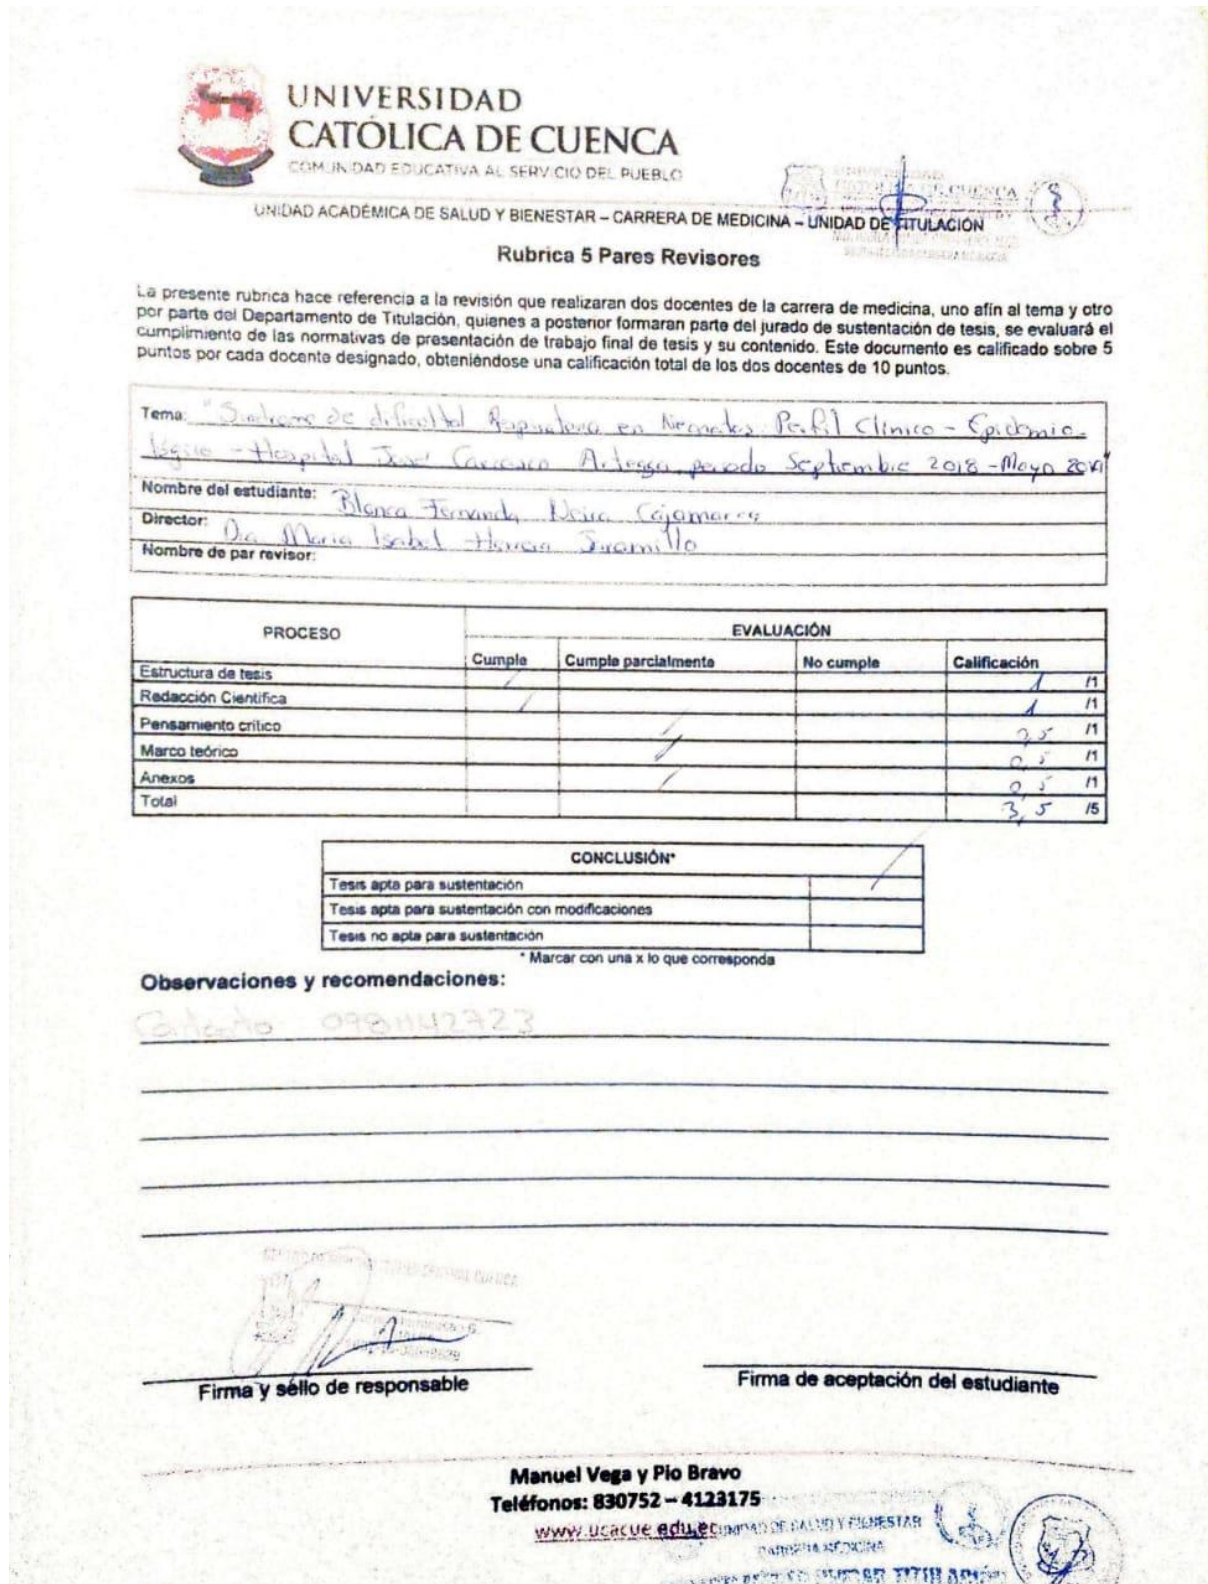 UNIVERSIDAD
CATÓLICA DE CUENCA
COMUNIDAD EDUCATIVA AL SERVICIO DEL PUEBLO
UNIDAD ACADÉMICA DE SALUD Y BIENESTAR – CARRERA DE MEDICINA – UNIDAD DE TITULACIÓN
Rubrica 5 Pares Revisores
La presente rubrica hace referencia a la revisión que realizaran dos docentes de la carrera de medicina, uno afín al tema y otro
por parte del Departamento de Titulación, quienes a posterior formaran parte del jurado de sustentación de tesis, se evaluará el
cumplimiento de las normativas de presentación de trabajo final de tesis y su contenido. Este documento es calificado sobre 5
puntos por cada docente designado, obteniéndose una calificación total de los dos docentes de 10 puntos.
Tema: "Sindrome de dificultad Respiratoria en Neonatos: Perfil Clinico - Epidemio-
lógico - Hospital José Carrasco Arteaga periodo Septiembre 2018 - Mayo
Nombre del estudiante: Blanca Fernanda Neira Cajamarca
Director: Dra Maria Isabel Herrera Jaramillo
Nombre de par revisor:
PROCESO EVALUACIÓN
Cumple Cumple parcialmente No cumple Calificación
Estructura de tesis / 1 /1
Redacción Científica / 1 /1
Pensamiento crítico / /1
Marco teórico / 0,5 /1
Anexos / 0,5 /1
Total 3,5 /5
CONCLUSIÓN*
Tesis apta para sustentación /
Tesis apta para sustentación con modificaciones
Tesis no apta para sustentación
* Marcar con una x lo que corresponda
Observaciones y recomendaciones:
Contacto 0981142723
Firma y sello de responsable
Firma de aceptación del estudiante
Manuel Vega y Pio Bravo
Teléfonos: 830752 – 4123175
www.ucacue.edu.ec
UNIDAD DE SALUD Y BIENESTAR
CARRERA MEDICINA
UNIDAD TITULACIÓN